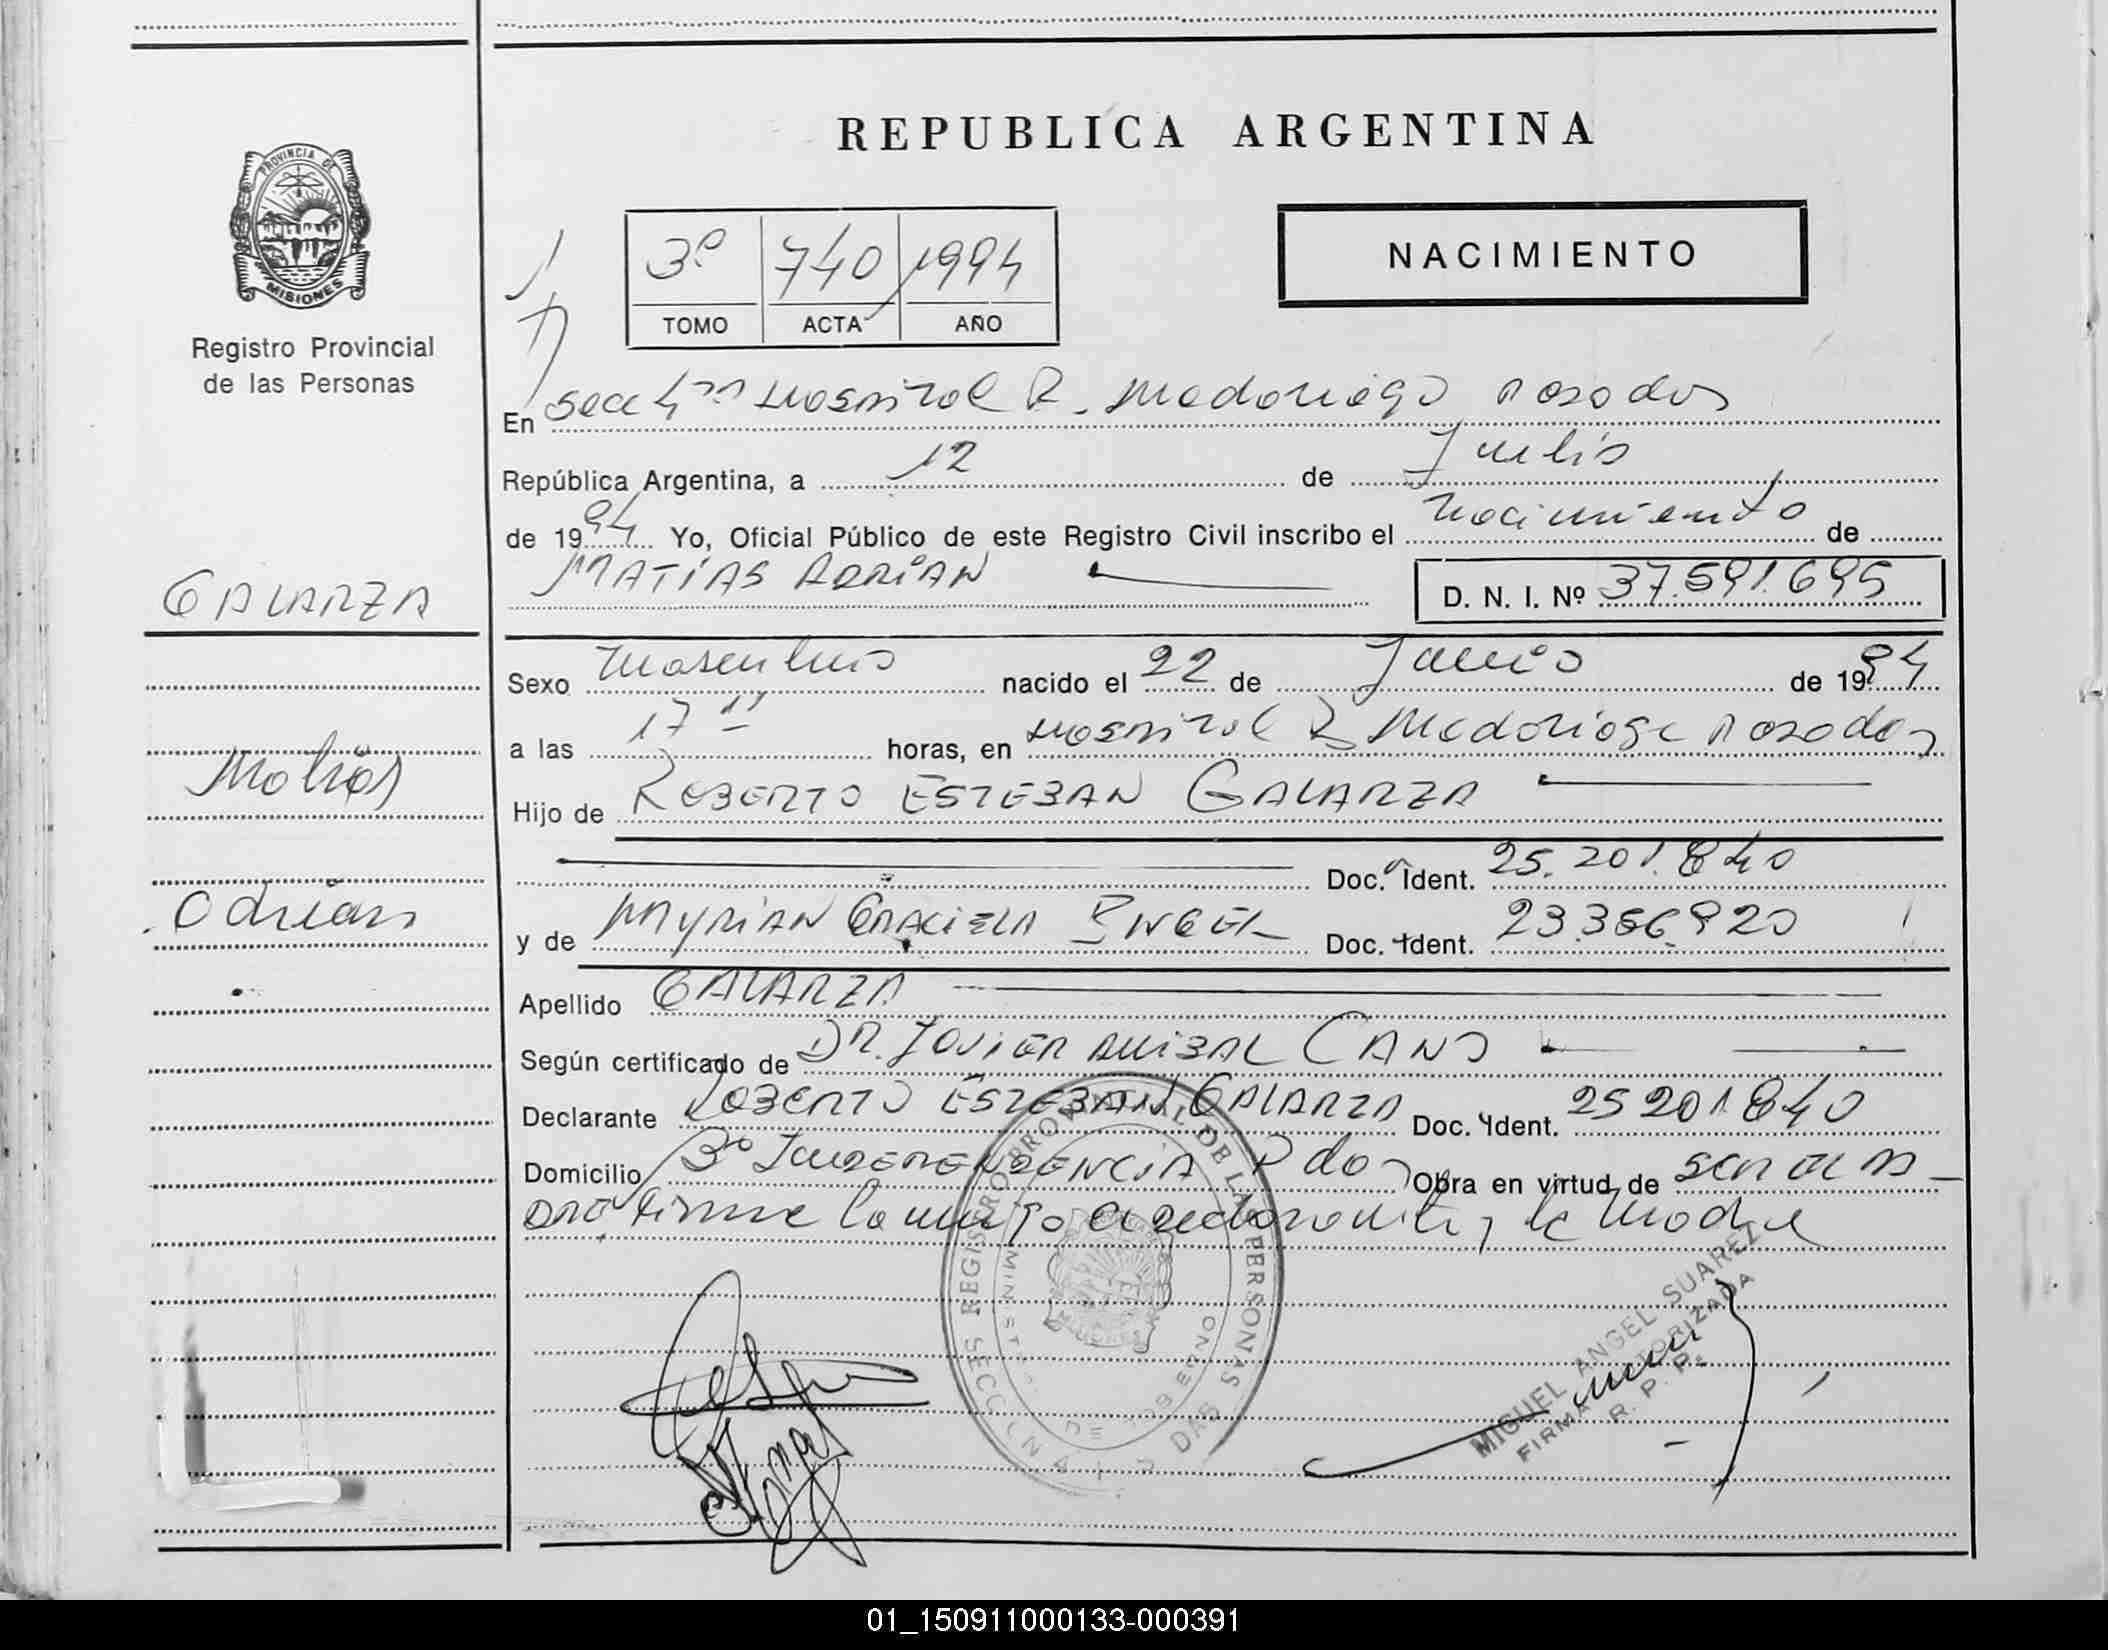 REPUBLICA ARGENTINA
PROVINCIA DE
MISIONES
Registro Provincial
de las Personas
3º 740 1994
TOMO ACTA AÑO
NACIMIENTO
En Secc 4ta Hospital R. Madariaga Posadas
República Argentina, a 12 de Julio
de 1994 Yo, Oficial Público de este Registro Civil inscribo el nacimiento de
MATIAS ADRIAN D. N. I. Nº 37.591.695
GALARZA
Sexo Masculino nacido el 22 de Junio de 1994
a las 17 horas, en Hospital R Madariaga Posadas
Matias
Hijo de ROBERTO ESTEBAN GALARZA
Doc. Ident. 25.201.840
Adrian
y de MYRIAN GRACIELA Doc. Ident. 23.356.920
Apellido GALARZA
Según certificado de DR. JAVIER ANIBAL CANO
Declarante ROBERTO ESTEBAN GALARZA Doc. Ident. 25201840
Domicilio INDEPENDENCIA Pdas Obra en virtud de ser el pa-
dre firma la madre
REGISTRO PROVINCIAL DE LAS PERSONAS
SECCION
MINISTERIO DE GOBIERNO
MISIONES
MIGUEL ANGEL SUAREZ
FIRMA AUTORIZADA
R. P. P.
01_150911000133-000391